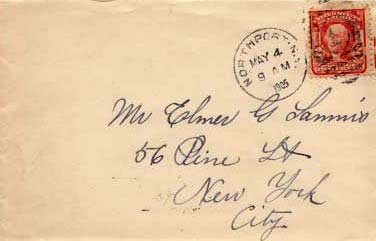 NORTHPORT, N.Y.
MAY 4
9 AM
1905
Mr Elmer G Sammis
56 Pine St
New York
City